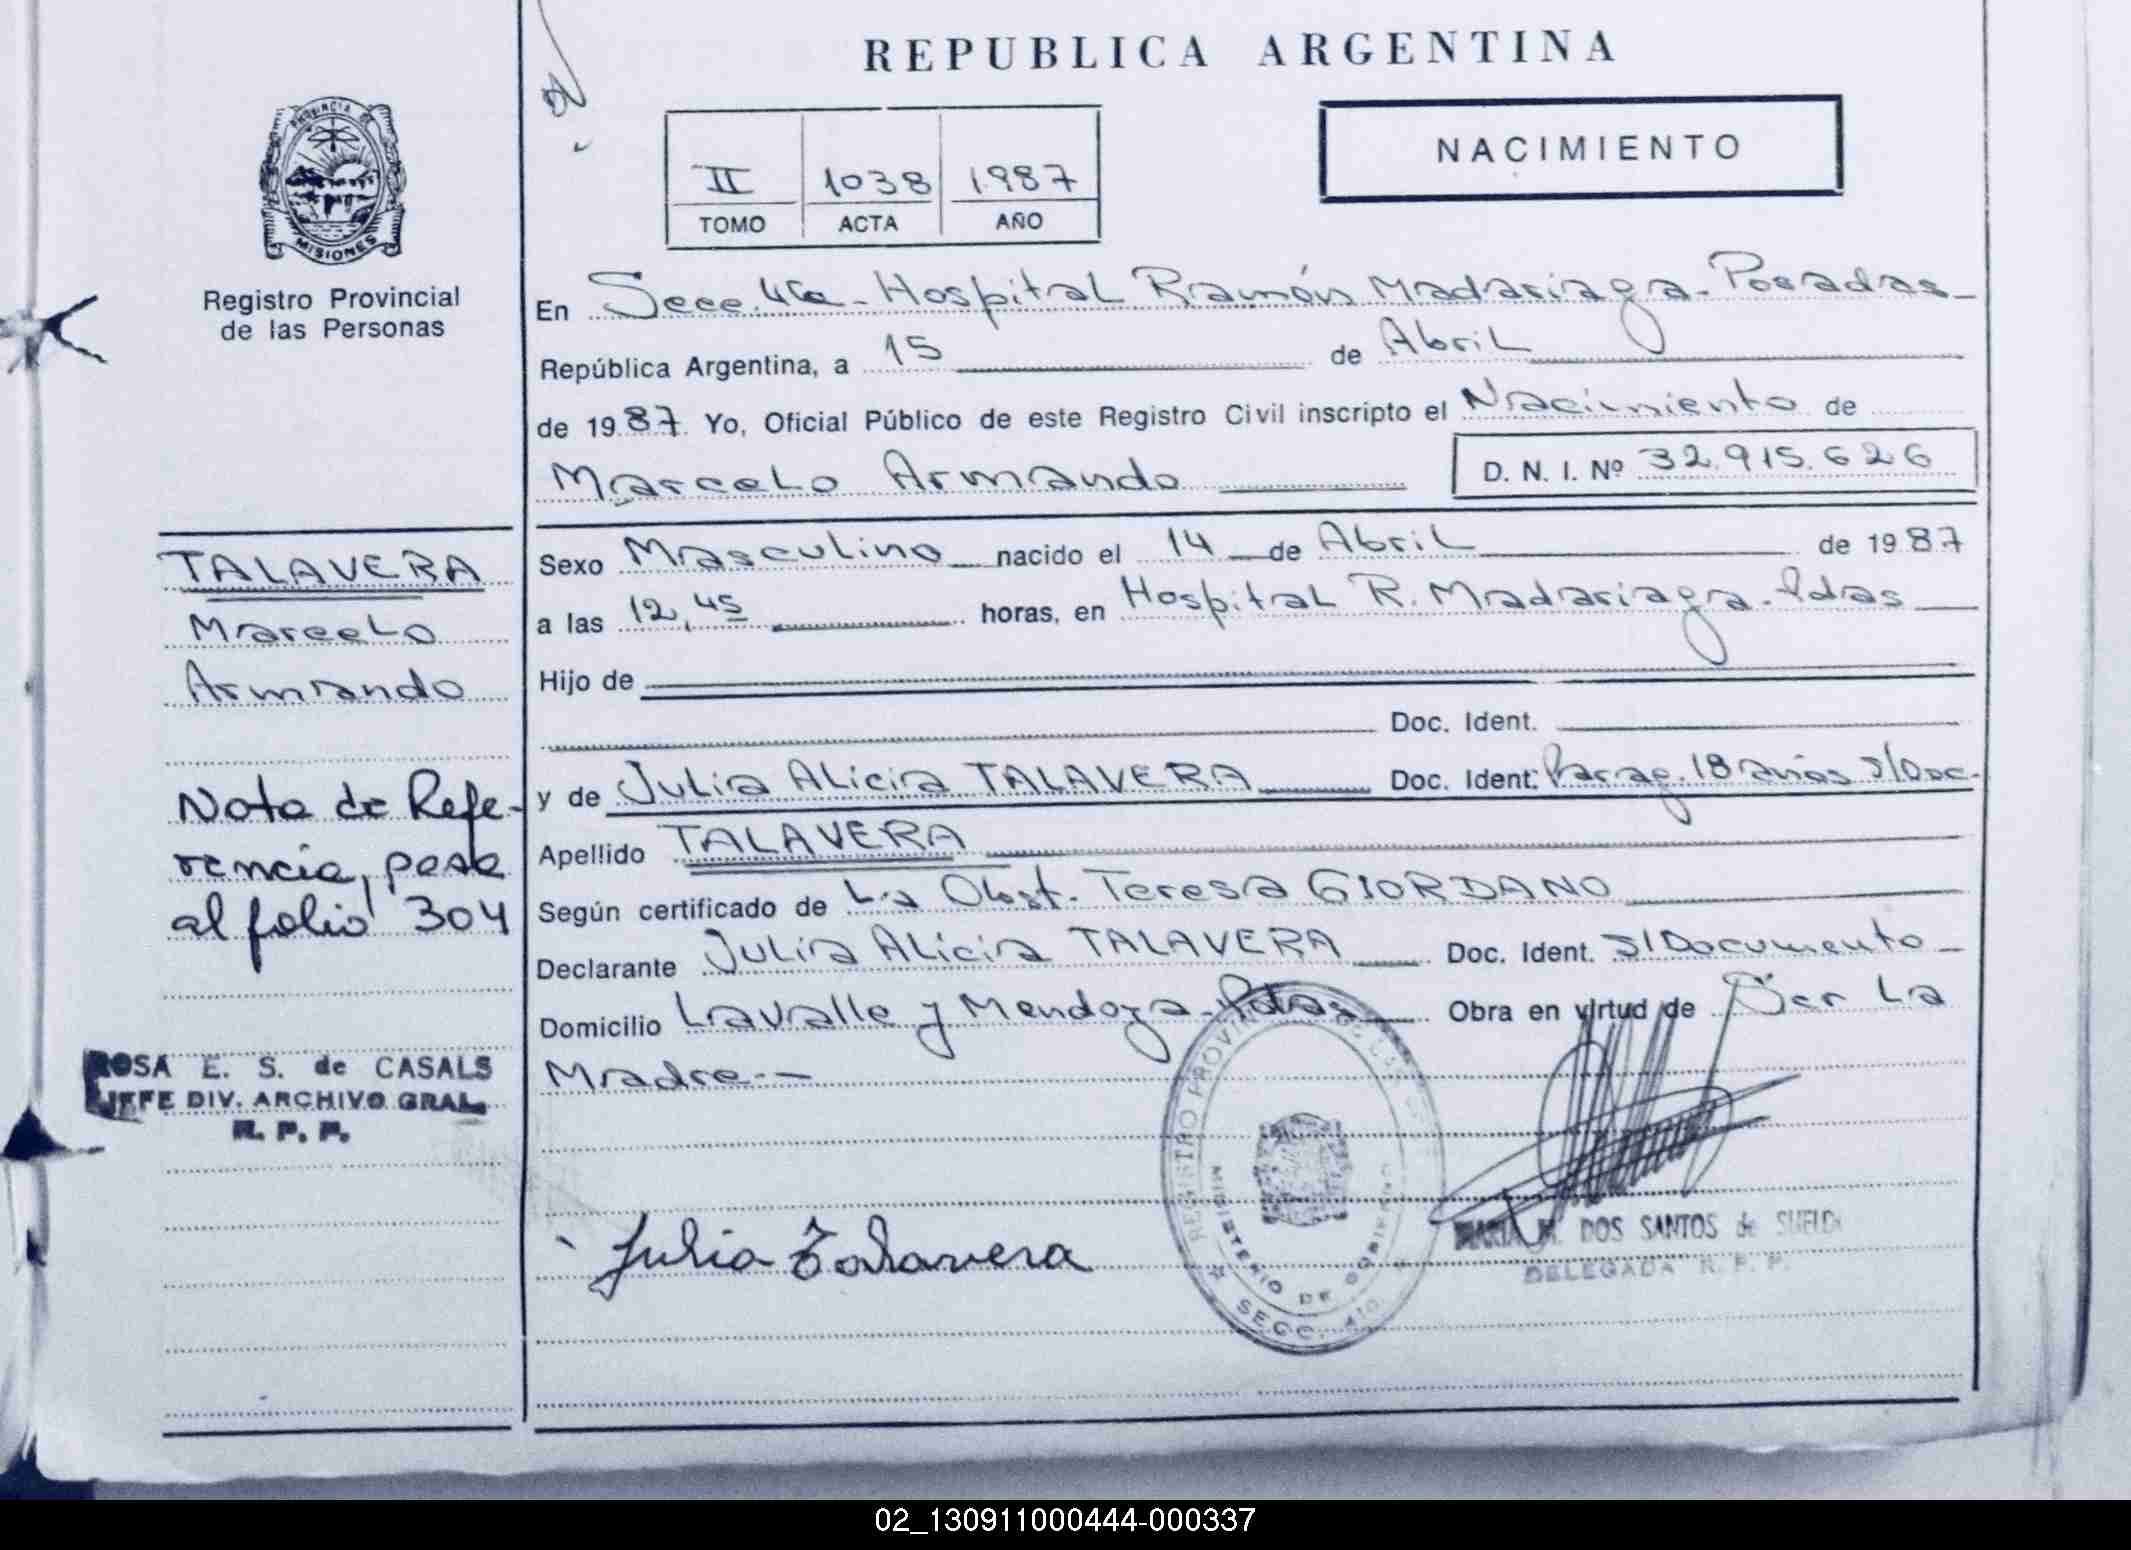 REPUBLICA ARGENTINA
PROVINCIA DE
MISIONES
Registro Provincial
de las Personas
II 1038 1987
TOMO ACTA AÑO
NACIMIENTO
En Secc. 4ta - Hospital Ramón Madariaga - Posadas
República Argentina, a 15 de Abril
de 1987 Yo, Oficial Público de este Registro Civil inscripto el Nacimiento de
Marcelo Armando D. N. I. Nº 32.915.626
Sexo Masculino nacido el 14 de Abril de 1987
a las 12,45 horas, en Hospital R. Madariaga - Pdas
Hijo de
Doc. Ident.
y de Julia Alicia TALAVERA Doc. Ident: Parag. 18 años S/Doc.
Apellido TALAVERA
Según certificado de La Obst. Teresa GIORDANO
Declarante Julia Alicia TALAVERA Doc. Ident. S/Documento
Domicilio Lavalle y Mendoza - Pdas Obra en virtud de Ser La
Madre
TALAVERA
Marcelo
Armando
Nota de Refe-
rencia, pasa
al folio 304
ROSA E. S. de CASALS
JEFE DIV. ARCHIVO GRAL
R. P. P.
Julia Talavera
REGISTRO PROVIN
MINISTERIO DE GOBIERNO
SECC.
DOS SANTOS de
DELEGADA R. P. P.
02_130911000444-000337